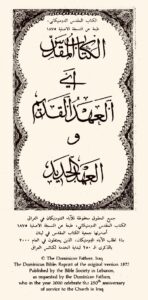 الكتاب المقدس الدومينيكاني
طبعة عن النسخة الأصلية ١٨٧٥
الكتاب المقدس
أي
العهد القديم
و
العهد الجديد
جميع الحقوق محفوظة للآباء الدومينيكان في العراق
الكتاب المقدس الدومينيكاني، طبعة عن النسخة الأصلية ١٨٧٥
أصدرتها جمعية الكتاب المقدس في لبنان
بناءً لطلب الآباء الدومينيكان، الذين يحتفلون في العام ٢٠٠٠
بالذكرى الـ ٢٥٠ لبداية الخدمة للكنائس في العراق
© The Dominican Fathers, Iraq
The Dominican Bible: Reprint of the original version 1875
Published by the Bible Society in Lebanon,
as requested by the Dominican Fathers,
who in the year 2000 celebrate the 250th anniversary
of service to the Church in Iraq